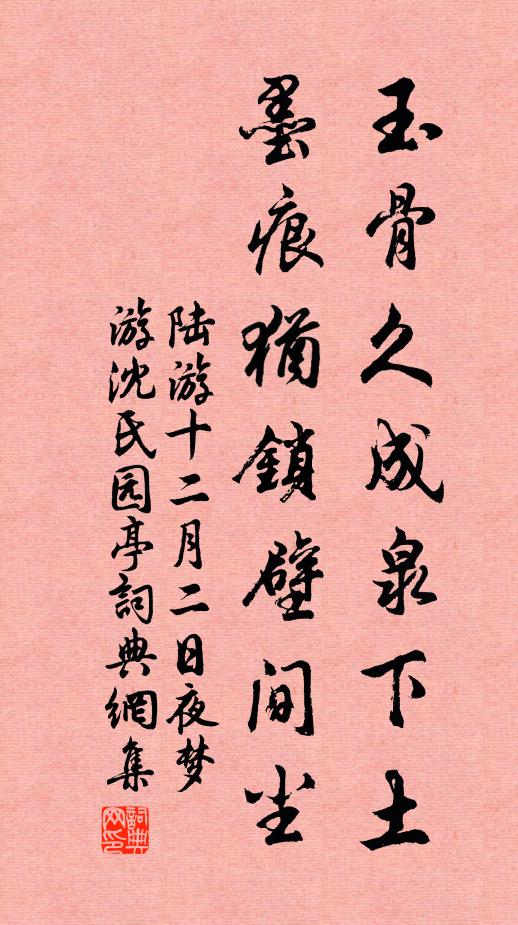 玉骨久成泉下土
墨痕犹鎖壁间尘
陆游十二月二日夜梦
游沈氏园亭詞典網集
詞典
网印